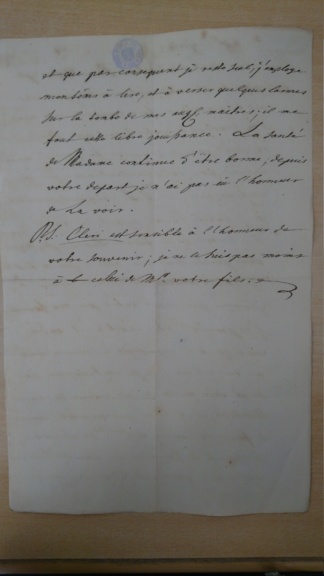 et que par consequent je reste seul; j'employe
mon tems à lire, et à verser quelques larmes
sur la tombe de mes augs. maitres; il me
faut cette libre jouissance. La santé
de Madame continue d'être bonne, depuis
votre depart je n'ai pas eu l'honneur
de La voir.
P.S. Cleri est sensible à l'honneur de
votre souvenir; je ne le suis pas moins
à celui de Mr. votre fils.